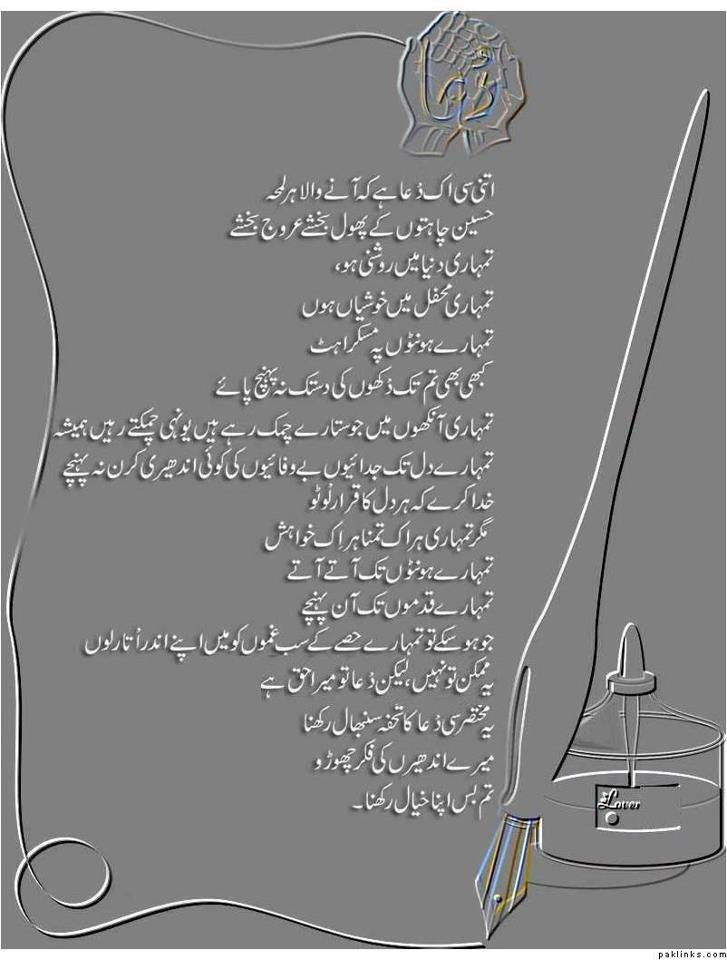 دُعا
اتنی سی اک دُعا ہے کہ آنے والا ہر لمحہ
حسین چاہتوں کے پھول بخشے عروج بخشے
تمہاری دنیا میں روشنی ہو،
تمہاری محفل میں خوشیاں ہوں
تمہارے ہونٹوں پہ مسکراہٹ
کبھی بھی تم تک دُکھوں کی دستک نہ پہنچ پائے
تمہاری آنکھوں میں جو ستارے چمک رہے ہیں یونہی چمکتے رہیں ہمیشہ
تمہارے دل تک جدائیوں بے وفائیوں کی کوئی اندھیری کرن نہ پہنچے
خدا کرے کہ ہر دل کا قرار لُوٹو
مگر تمہاری ہر اک تمنا ہر اِک خواہش
تمہارے ہونٹوں تک آتے آتے
تمہارے قدموں تک آن پہنچے
جو ہو سکے تو تمہارے حصے کے سب غموں کو میں اپنے اندر اُتار لوں
یہ ممکن تو نہیں، لیکن دُعا تو میرا حق ہے
یہ مختصر سی دُعا کا تحفہ سنبھال رکھنا
میرے اندھیرں کی فکر چھوڑو
تم بس اپنا خیال رکھنا۔
Lover
paklinks.com